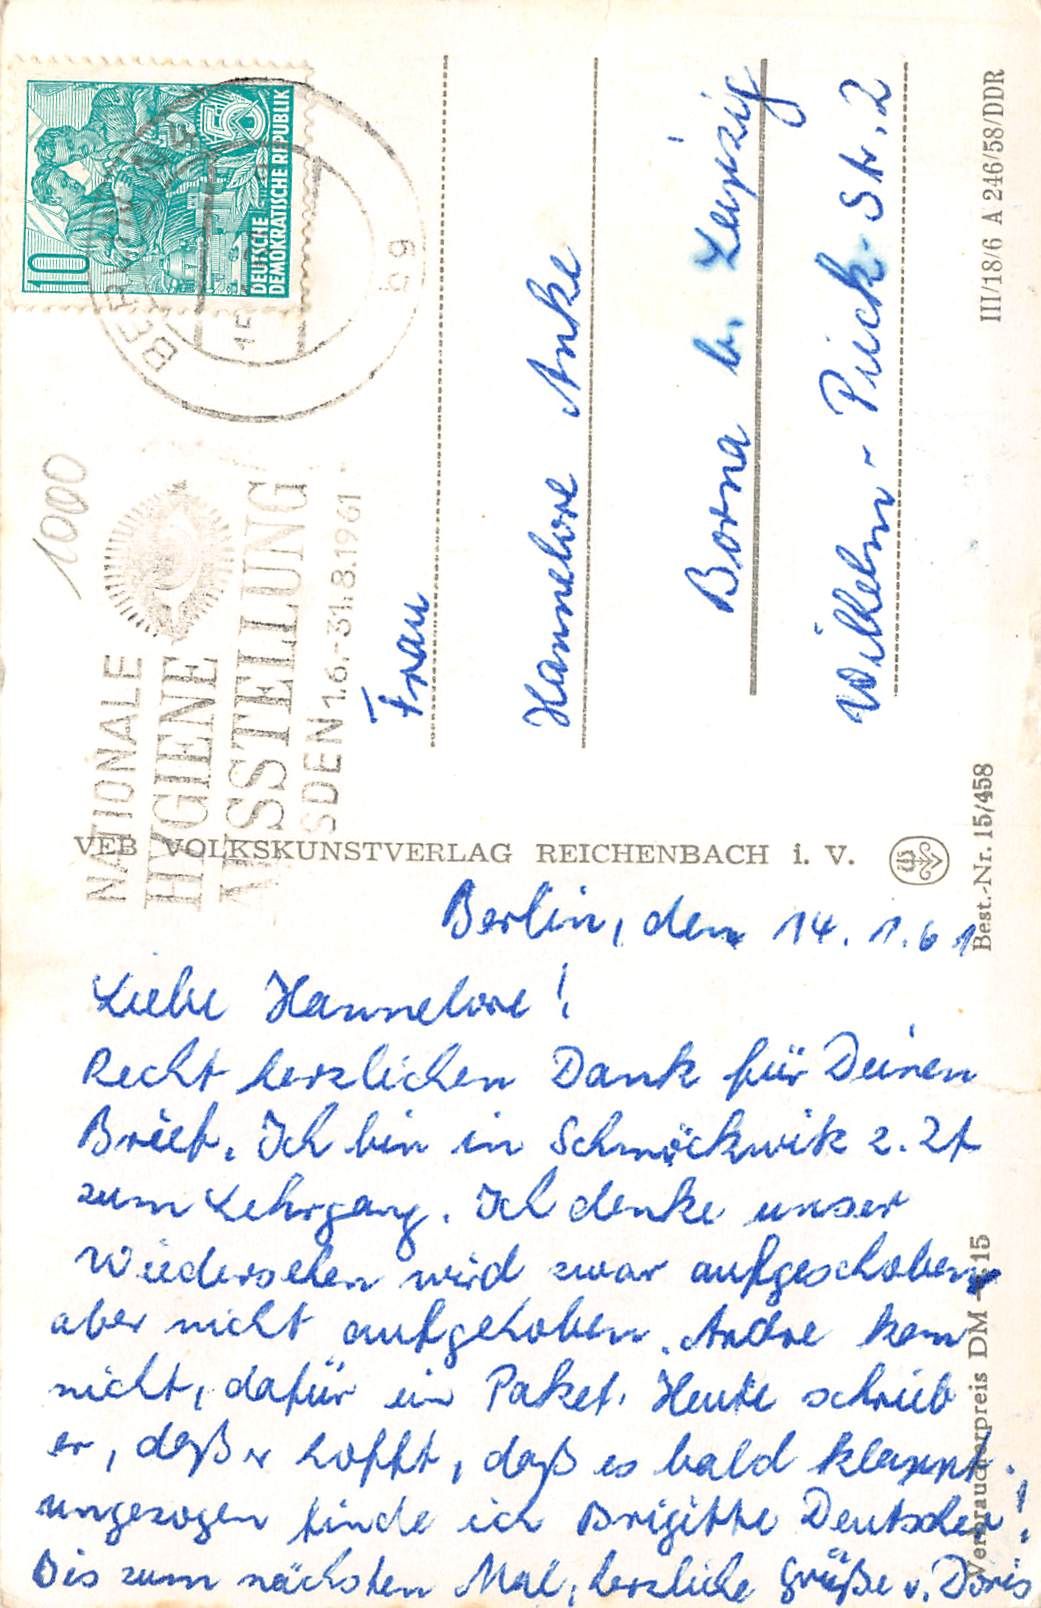 10
DEUTSCHE
DEMOKRATISCHE REPUBLIK
BERLIN
15
b g
1000
NATIONALE
HYGIENE
AUSSTELLUNG
SDEN 1.6.-31.8.1961
Frau
Hannelore Anke
Borna b. Leipzig
Wilhelm-Pieck-Str. 2
III/18/6 A 246/58/DDR
VEB VOLKSKUNSTVERLAG REICHENBACH i. V.
Best.-Nr. 15/458
Verbraucherpreis DM 15
Berlin, den 14. 1. 61
Liebe Hannelore!
Recht herzlichen Dank für Deinen
Brief. Ich bin in Schmöckwitz z. Zt
zum Lehrgang. Ich denke unser
Wiedersehen wird zwar aufgeschoben,
aber nicht aufgehoben. Andre kam
nicht, dafür ein Paket. Heute schrieb
er, daß er hofft, daß es bald klappt.
ungezogen finde ich Brigitte Deutscher!
Bis zum nächsten Mal, herzliche Grüße v. Doris